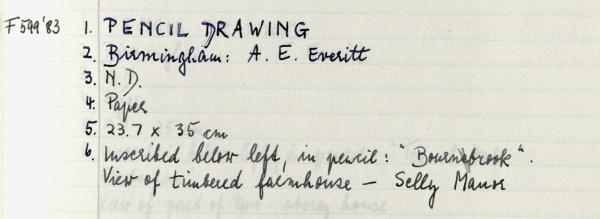 F599'83 1. PENCIL DRAWING
2. Birmingham: A. E. Everitt
3. N.D.
4. Paper
5. 23.7 x 35 cm
6. Inscribed below left, in pencil: "Bournbrook".
View of timbered farmhouse — Selly Manor